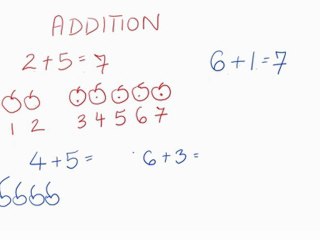 ADDITION
2+5=7 6+1=7
1 2 3 4 5 6 7
4+5= 6+3=